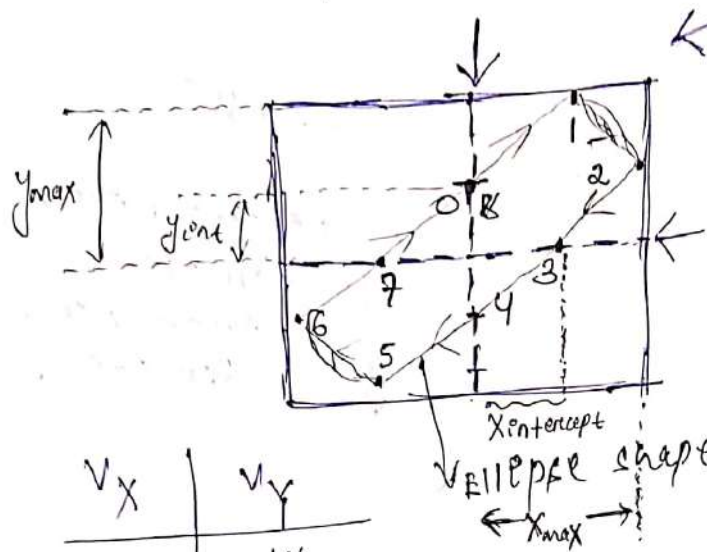 1
2
ymax
yint
0 8
3
7
6
4
5
Xintercept
Ellipse shape
Xmax
VX VY